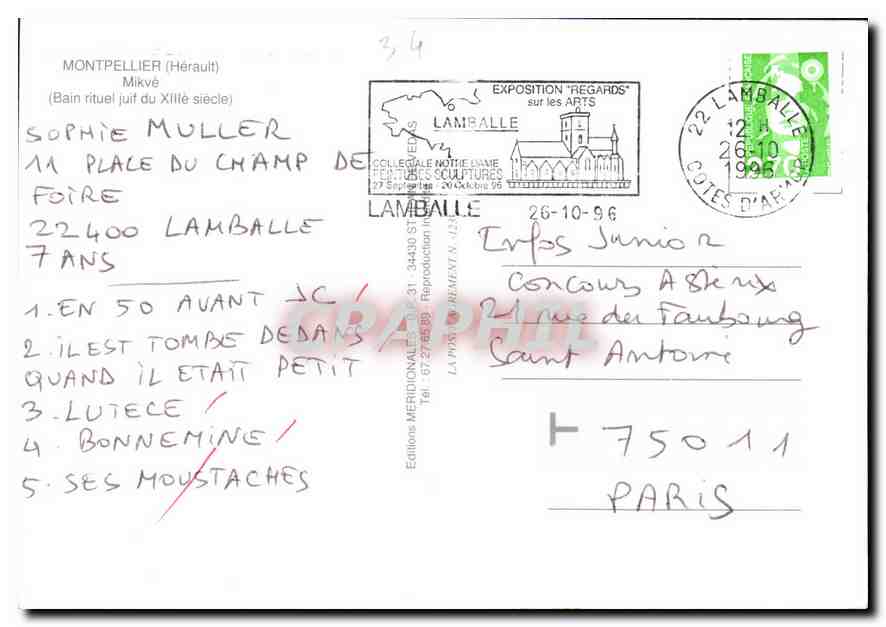 34
MONTPELLIER (Hérault)
Mikvé
(Bain rituel juif du XIIIè siècle)
SOPHIE MULLER
11 PLACE DU CHAMP DE
FOIRE
22400 LAMBALLE
7 ANS
1. EN 50 AVANT JC
2. IL EST TOMBE DEDANS
QUAND IL ETAIT PETIT
3. LUTECE
4. BONNEMINE
5. SES MOUSTACHES
EXPOSITION "REGARDS"
sur les ARTS
LAMBALLE
COLLEGIALE NOTRE DAME
PEINTURES SCULPTURES
27 Septembre - 20 Octobre 96
LAMBALLE 26-10-96
22 LAMBALLE
12 H
26-10
1996
COTES D'ARMOR
Editions MERIDIONALES - B.P. 31 - 34430 ST
Tél. : 67.27.65.89 - Reproduction
LA POSTE
CPAPHIL
Infos Junior
Concours Astérix
21 rue du Faubourg
Saint Antoine
T 75011
PARIS